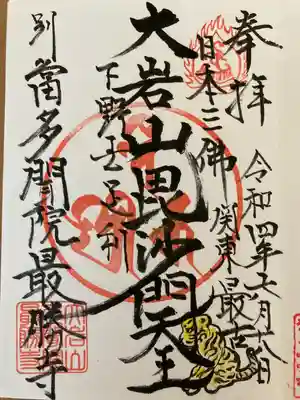 奉拝
令和四年
日本三佛
関東最古
大岩山毘沙門天王
下野国足利
別當多聞院最勝寺